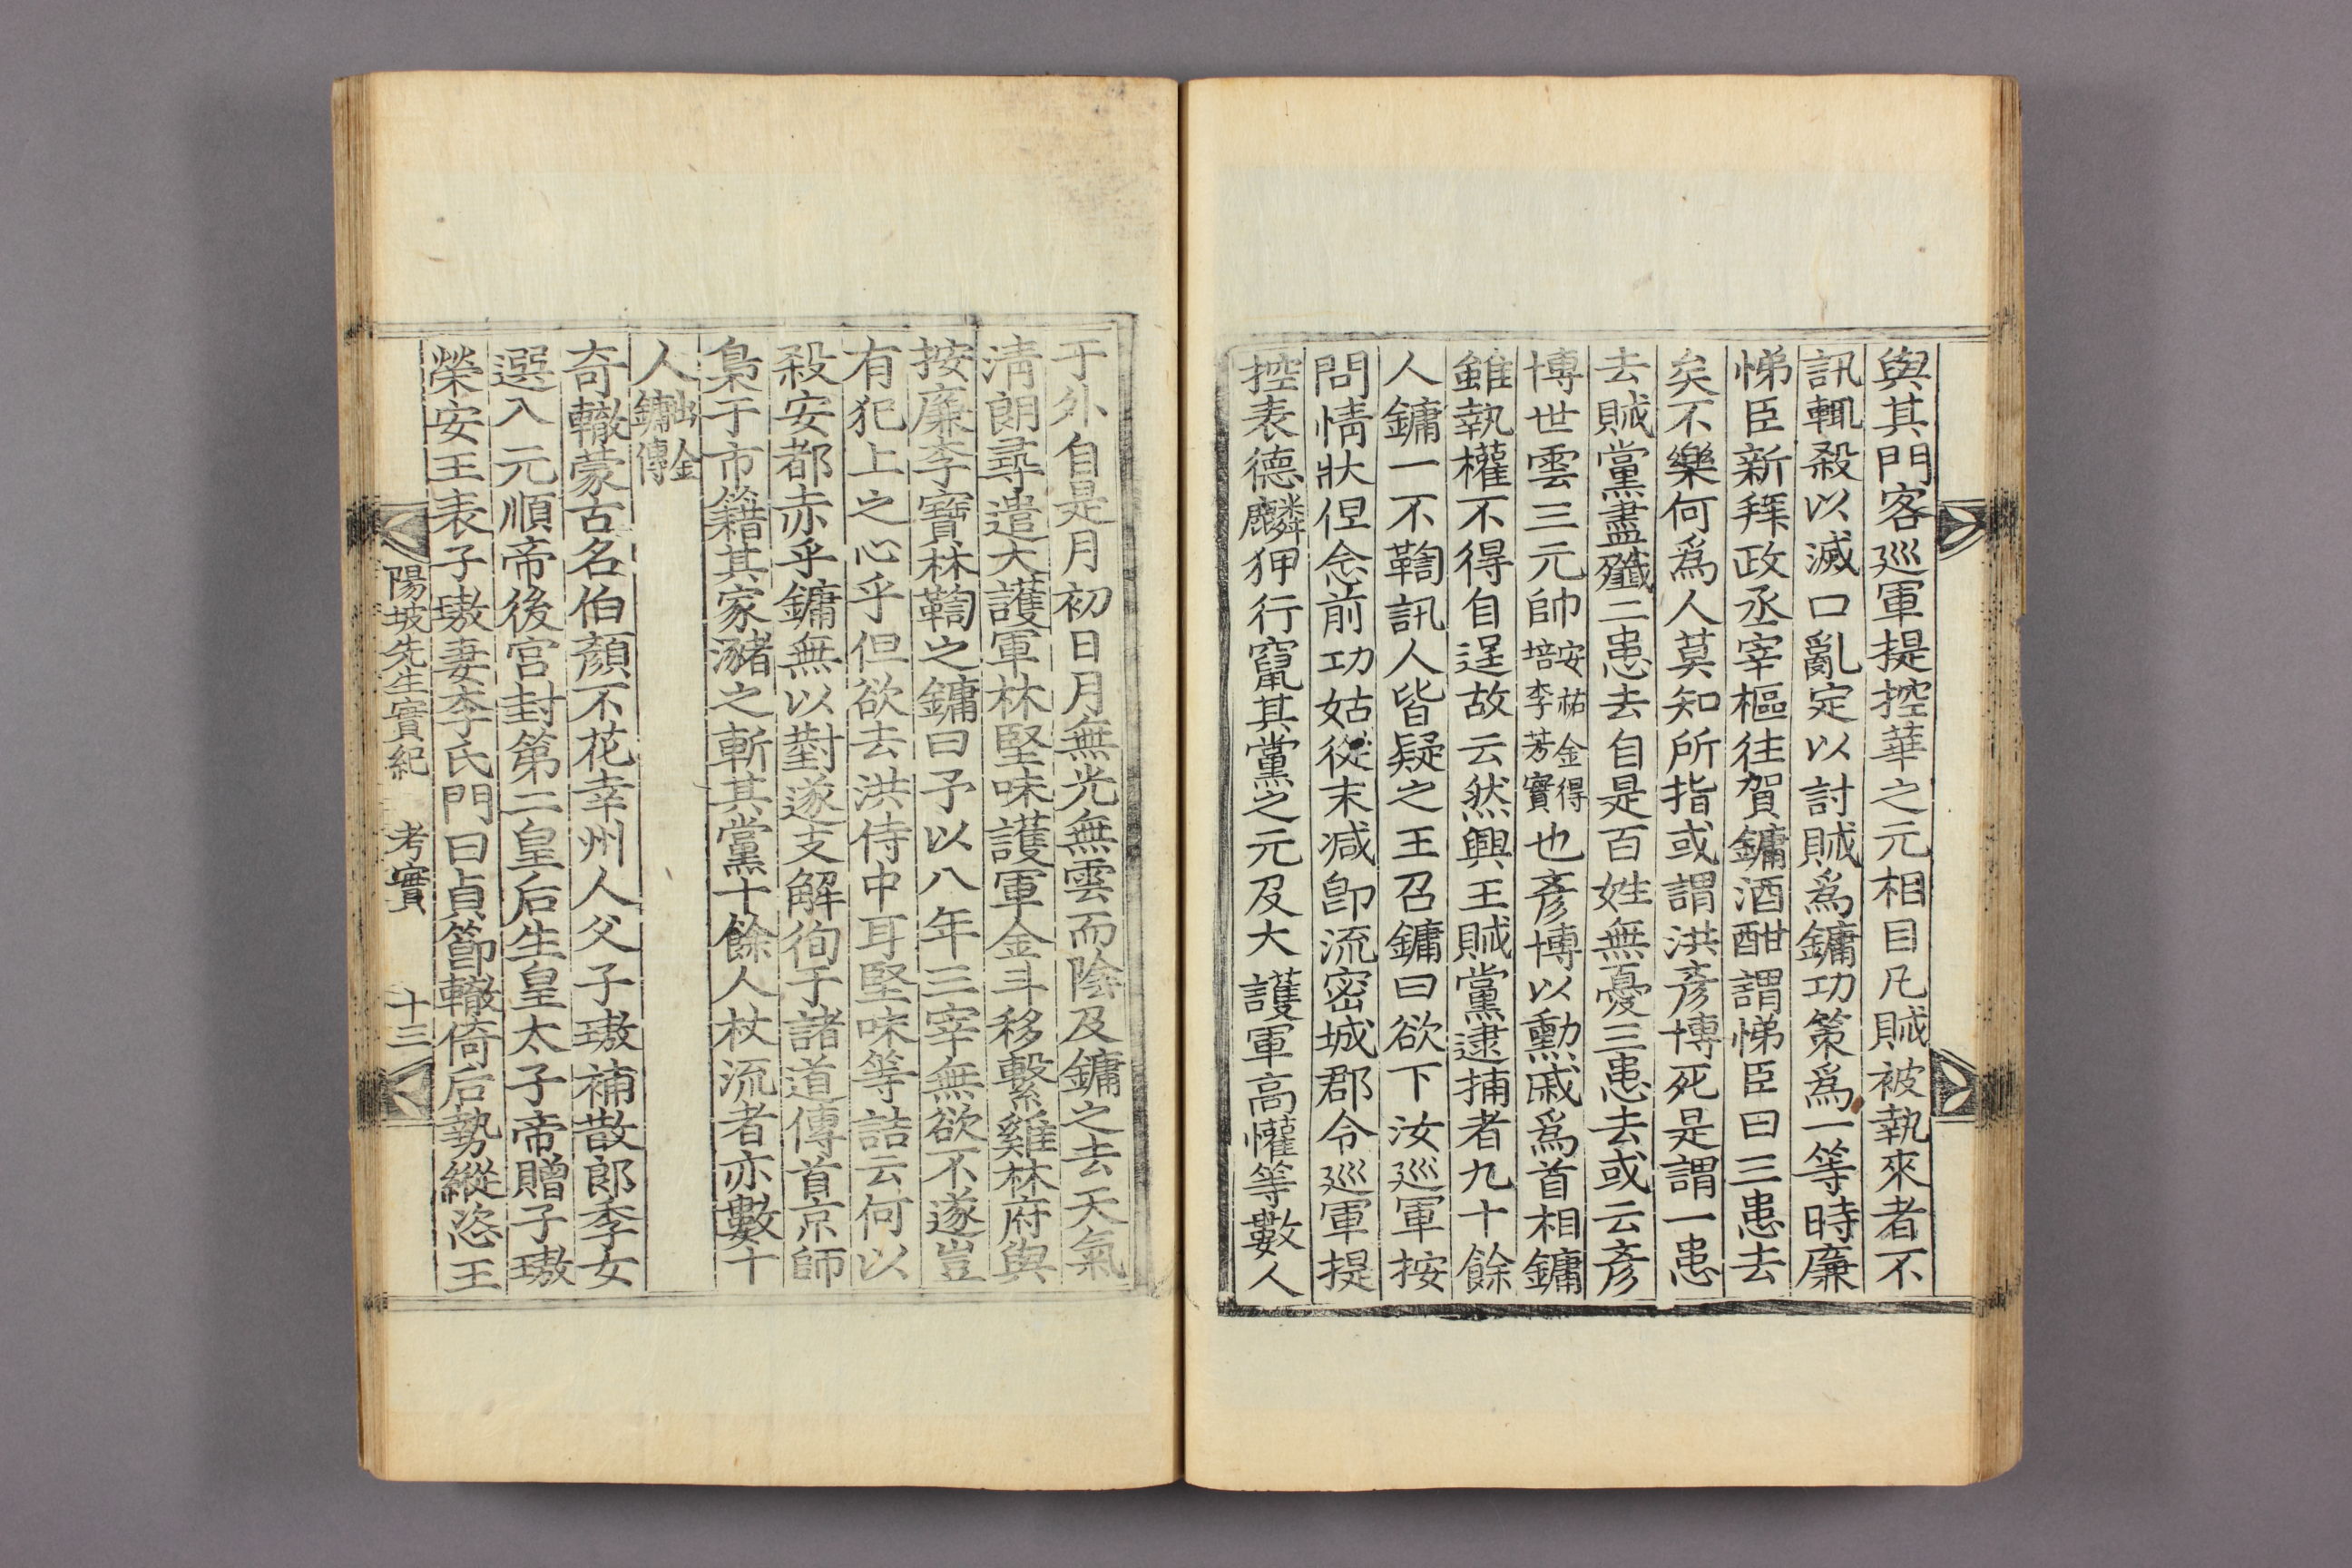 與其門客巡軍提控華之元相目凡賊被執來者不
訊輒殺以滅口亂定以討賊爲鏞功策爲一等時廉
悌臣新拜政丞宰樞往賀鏞酒酣謂悌臣曰三患去
矣不樂何爲人莫知所指或謂洪彥博死是謂一患
去賊黨盡殲二患去自是百姓無憂三患去或云彥
博世雲三元帥安祐金得培李芳實也彥博以勳戚爲首相鏞
雖執權不得自逞故云然興王賊黨逮捕者九十餘
人鏞一不鞫訊人皆疑之王召鏞曰欲下汝巡軍按
問情狀但念前功姑從末減卽流密城郡令巡軍提
控表德麟狎行竄其黨之元及大護軍高懽等數人
于外自是月初日月無光無雲而陰及鏞之去天氣
淸朗尋遣大護軍林堅味護軍金斗移繫雞林府與
按廉李寶林鞫之鏞曰予以八年三宰無欲不遂豈
有犯上之心乎但欲去洪侍中耳堅味等詰云何以
殺安都赤乎鏞無以對遂支解徇于諸道傳首京師
梟于市籍其家瀦之斬其黨十餘人杖流者亦數十
人出金鏞傳
奇轍蒙古名伯顏不花幸州人父子璈補散郎季女
選入元順帝後宮封第二皇后生皇太子帝贈子璈
榮安王表子璈妻李氏門曰貞節轍倚后勢縱恣王
陽坡先生實紀 考實 十三